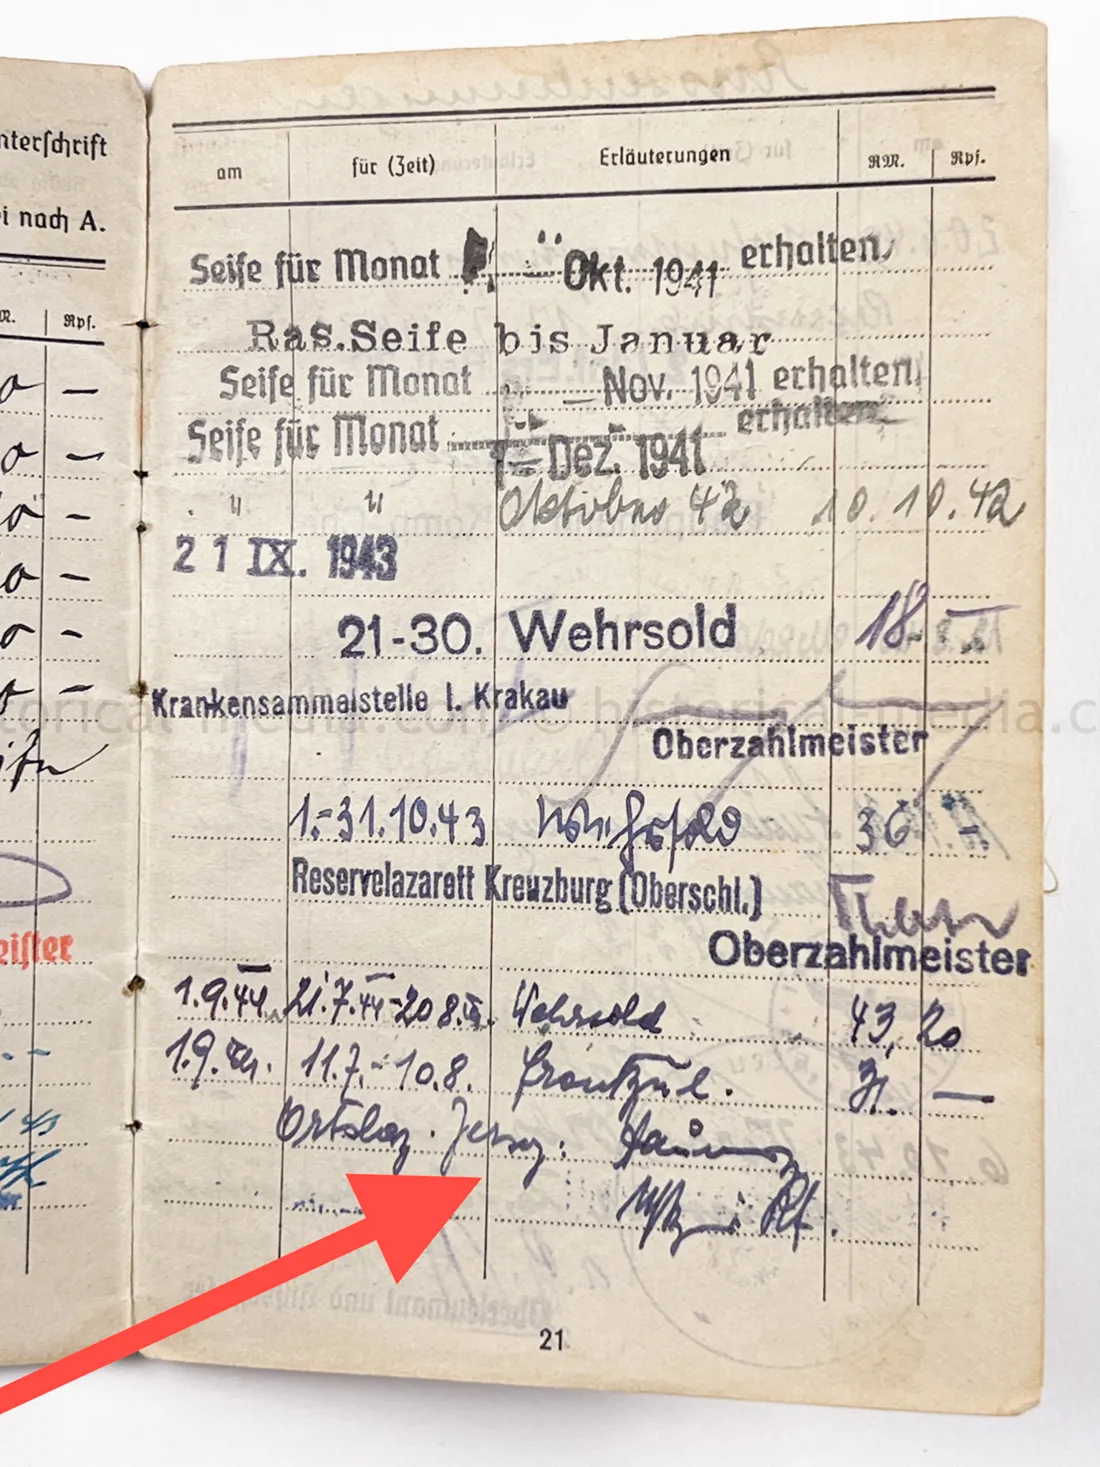 nterschrift
i nach A.
Rpf.
eister
am für (Zeit) Erläuterungen RM. Rpf.
Seife für Monat Okt. 1941 erhalten
Ras.Seife bis Januar
Seife für Monat Nov. 1941 erhalten
Seife für Monat Dez. 1941 erhalten
" " Oktober 42 10.10.42
21 IX. 1943
21-30. Wehrsold 18.-
Krankensammelstelle I. Krakau
Oberzahlmeister
1.-31.10.43 Wehrsold 36.-
Reservelazarett Kreuzburg (Oberschl.)
Oberzahlmeister
1.9.44 21.7.44-20.8. Wehrsold 43,20
1.9. 11.7.-10.8. Frontzul. —
Ortslaz.
21
historical-media.com © historical-media.c